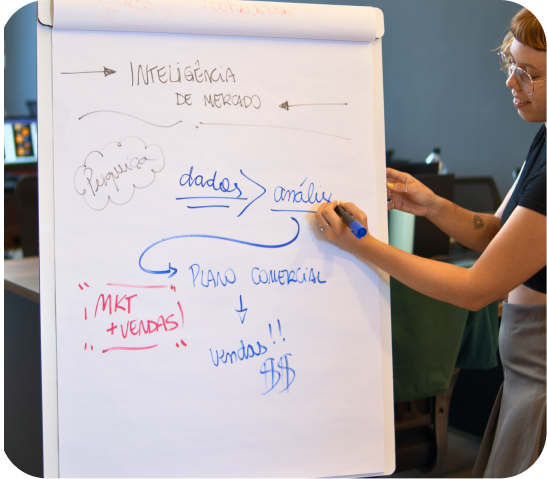 INTELIGÊNCIA
DE MERCADO
Pesquisa
dados > anális
PLANO COMERCIAL
MKT
+VENDAS
vendas!!
$$